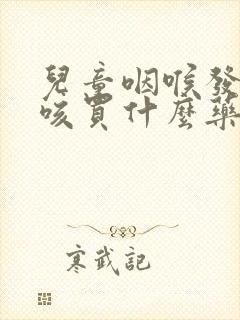 兒童咽喉發
咳買什麼藥
寒武記